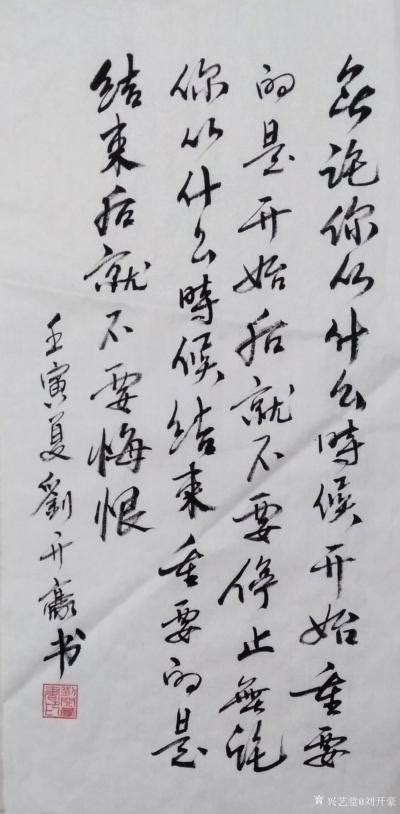 無论你从什么時候开始重要
的是开始后就不要停止無论
你从什么時候结束重要的是
结束后就不要悔恨
壬寅夏劉开豪书
兴艺堂@刘开豪